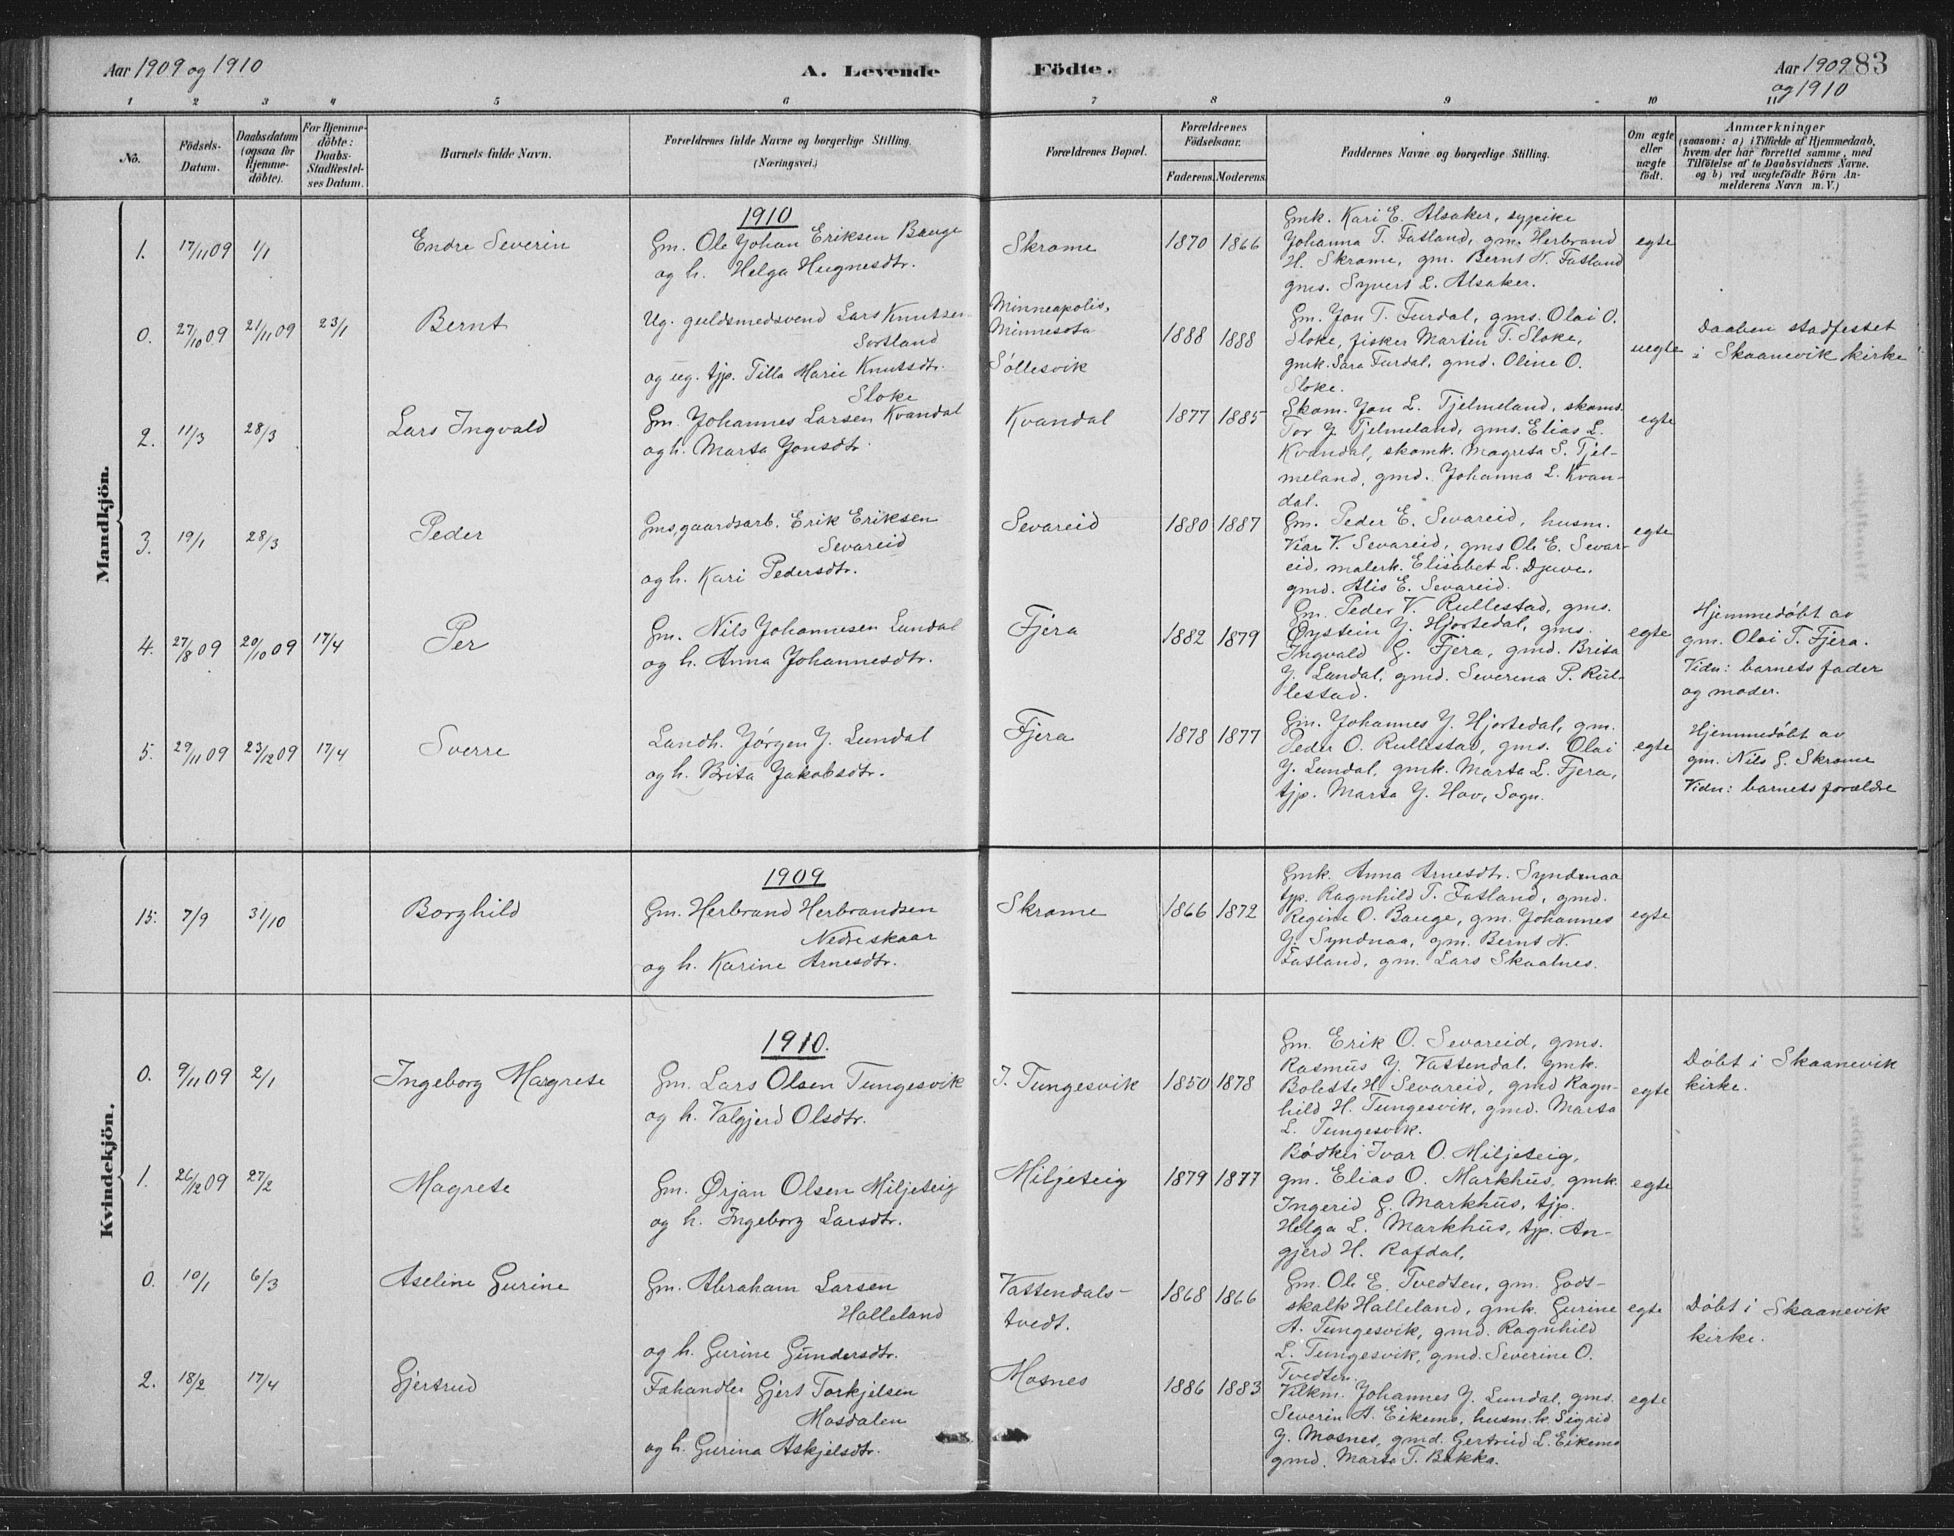 Aar 1909 og 1910
A. Levende Födte.
Aar 1909 og 1910
83
1 2 3 4 5 6 7 8 9 10 11
No.
Födsels-Datum.
Daabsdatum (ogsaa for Hjemmedöbte).
For Hjemmedöbte: Daabs-Stadfestelses Datum.
Barnets fulde Navn.
Forældrenes fulde Navne og borgerlige Stilling. (Næringsvei.)
Forældrenes Bopæl.
Forældrenes Födselsaar.
Faderens. Moderens.
Faddernes Navne og borgerlige Stilling.
Om ægte eller uægte födt.
Anmærkninger
(saasom: a) i Tilfælde af Hjemmedaab, hvem der har forrettet samme, med Tilföielse af to Daabsvidners Navne. og b) ved uægtefödte Börn Anmelderens Navn m. V.)
Mandkjön.
1910
1. 17/11 09 1/1 Endre Severin
Gm. Ole Johan Eriksen Bauge
og h. Helga Hugnesdtr.
Skrome 1870 1866
Gmk. Kari E. Alsaker, sypike
Johanna T. Fatland, gm. Herbrand
H. Skrome, gm. Bernt N. Fatland
gms. Syvert L. Alsaker.
egte
0. 27/10 09 21/11 09 23/1 Bernt
Ug. guldsmedsvend Lars Knutsen
Sortland
og ug. tjp. Tilla Marie Knutsdtr.
Sloke
Minneapolis,
Minnesota
Söllesvik
1888 1888
Gm. Jon T. Furdal, gms. Olai O.
Sloke, fisker Martin T. Sloke,
gmk. Sara Furdal, gmd. Oline O.
Sloke.
uegte
Daaben stadfestet
i Skaanevik kirke
2. 11/3 28/3 Lars Ingvald
Gm. Johannes Larsen Kvandal
og h. Marta Jonsdtr.
Kvandal 1877 1885
Skom. Jon L. Tjelmeland, skoms.
Tor J. Tjelmeland, gms. Elias L.
Kvandal, skomk. Magreta S. Tjel-
meland, gmd. Johanna L. Kvan-
dal.
egte
3. 19/1 28/3 Peder
Gms, gaardsarb. Erik Eriksen
Sevareid
og h. Kari Pedersdtr.
Sevareid 1880 1887
Gm. Peder E. Sevareid, husm.
Viar V. Sevareid, gms Ole E. Sevar-
eid, malerk. Elisabet L. Djuve,
gmd. Alis E. Sevareid.
egte
4. 27/8 09 20/10 09 17/4 Per
Gm. Nils Johannesen Lundal
og h. Anna Johannesdtr.
Fjera 1882 1879
Gm. Peder V. Rullestad, gms.
Øystein J. Hjortedal, gms.
Ingvald G. Fjera, gmd. Brita
J. Lundal, gmd. Severina P. Rul-
lestad.
egte
Hjemmedøbt av
gm. Olai T. Fjera.
Vidn: barnets fader
og moder.
5. 29/11 09 23/12 09 17/4 Sverre
Landh. Jørgen J. Lundal
og h. Brita Jakobsdtr.
Fjera 1878 1877
Gm. Johannes J. Hjortedal, gm.
Peder O. Rullestad, gms. Olai
J. Lundal, gmk. Marta L. Fjera,
tjp. Marta J. Hov, Sogn.
egte
Hjemmedøbt av
gm. Nils G. Skrome
Vidn: barnets forældre
Kvindekjön.
1909
15. 7/9 31/10 Borghild
Gm. Herbrand Herbrandsen
Nedreskaar
og h. Karine Arnesdtr.
Skrome 1866 1872
Gmk. Anna Arnesdtr. Syndnaa
tjp. Ragnhild T. Fatland, gmd.
Regine O. Bauge, gm. Johannes
J. Syndnaa, gm. Bernt N.
Fatland, gm. Lars Skaalnes.
egte
1910.
0. 9/11 09 2/1 Ingeborg Margrete
Gm. Lars Olsen Tungesvik
og h. Valgjerd Olsdtr.
I. Tungesvik 1850 1878
Gm. Erik O. Sevareid, gms.
Rasmus J. Vattendal, gmk.
Bolette H. Sevareid, gmd Ragn-
hild H. Tungesvik, gmd. Marta
L. Tungesvik.
egte
Døbt i Skaanevik
kirke.
1. 26/12 09 27/2 Magrete
Gm. Ørjan Olsen Miljeteig
og h. Ingeborg Larsdtr.
Miljeteig 1879 1877
Bødker Ivar O. Miljeteig,
gm. Elias O. Markhus, gmk.
Ingerid G. Markhus, tjp.
Helga L. Markhus, tjp. An-
gjerd H. Rafdal.
egte
0. 10/1 6/3 Aseline Gurine
Gm. Abraham Larsen
Halleland
og h. Gurine Gundersdtr.
Vattendals-
tvedt.
1868 1866
Gm. Ole E. Tvedten, gm. Gods-
skalk Halleland, gmk. Gurine
A. Tungesvik, gmd. Ragnhild
L. Tungesvik, gmd. Severine O.
Tvedten.
egte
Døbt i Skaanevik
kirke.
2. 18/2 17/4 Gjertrud
Fæhandler Gjert Torkjelsen
Mosdalen
og h. Gurina Askjelsdtr.
Mosnes 1886 1883
Johannes J. Lundal, gms.
Severin A. Eikemo, husm.k. Sigrid
J. Mosnes, gmd. Gertrud L. Eikemo
gmd. Marta T. Bakka.
egte